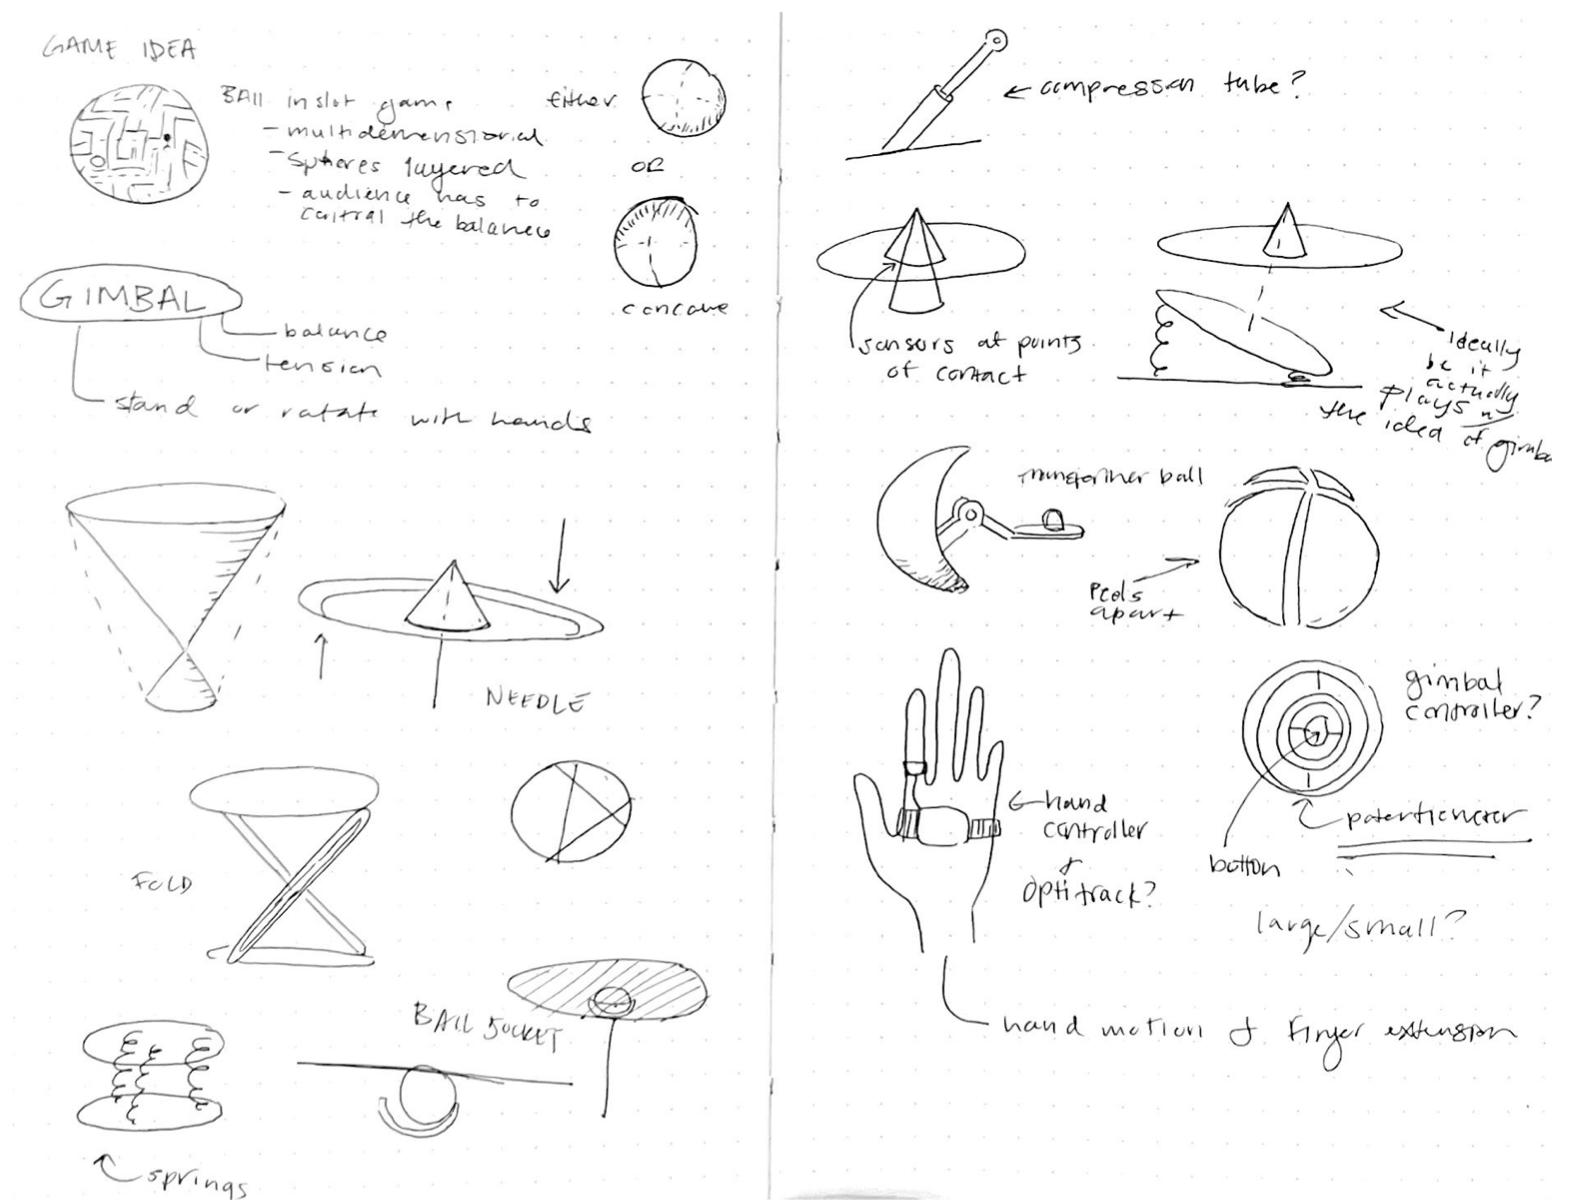 GAME IDEA
BAll in slot game
- multidemensional
- spheres layered
- audience has to
control the balance
either
OR
concave
GIMBAL
balance
tension
stand or rotate with hands
NEEDLE
FOLD
BALL SOCKET
springs
← compression tube?
sensors at points
of contact
Ideally
be it
actually
plays w/
the idea of gimba
ball
Peels
apart
gimbal
controller?
← hand
controller
+
Optitrack?
potentiometer
button
large/small?
hand motion & finger extension